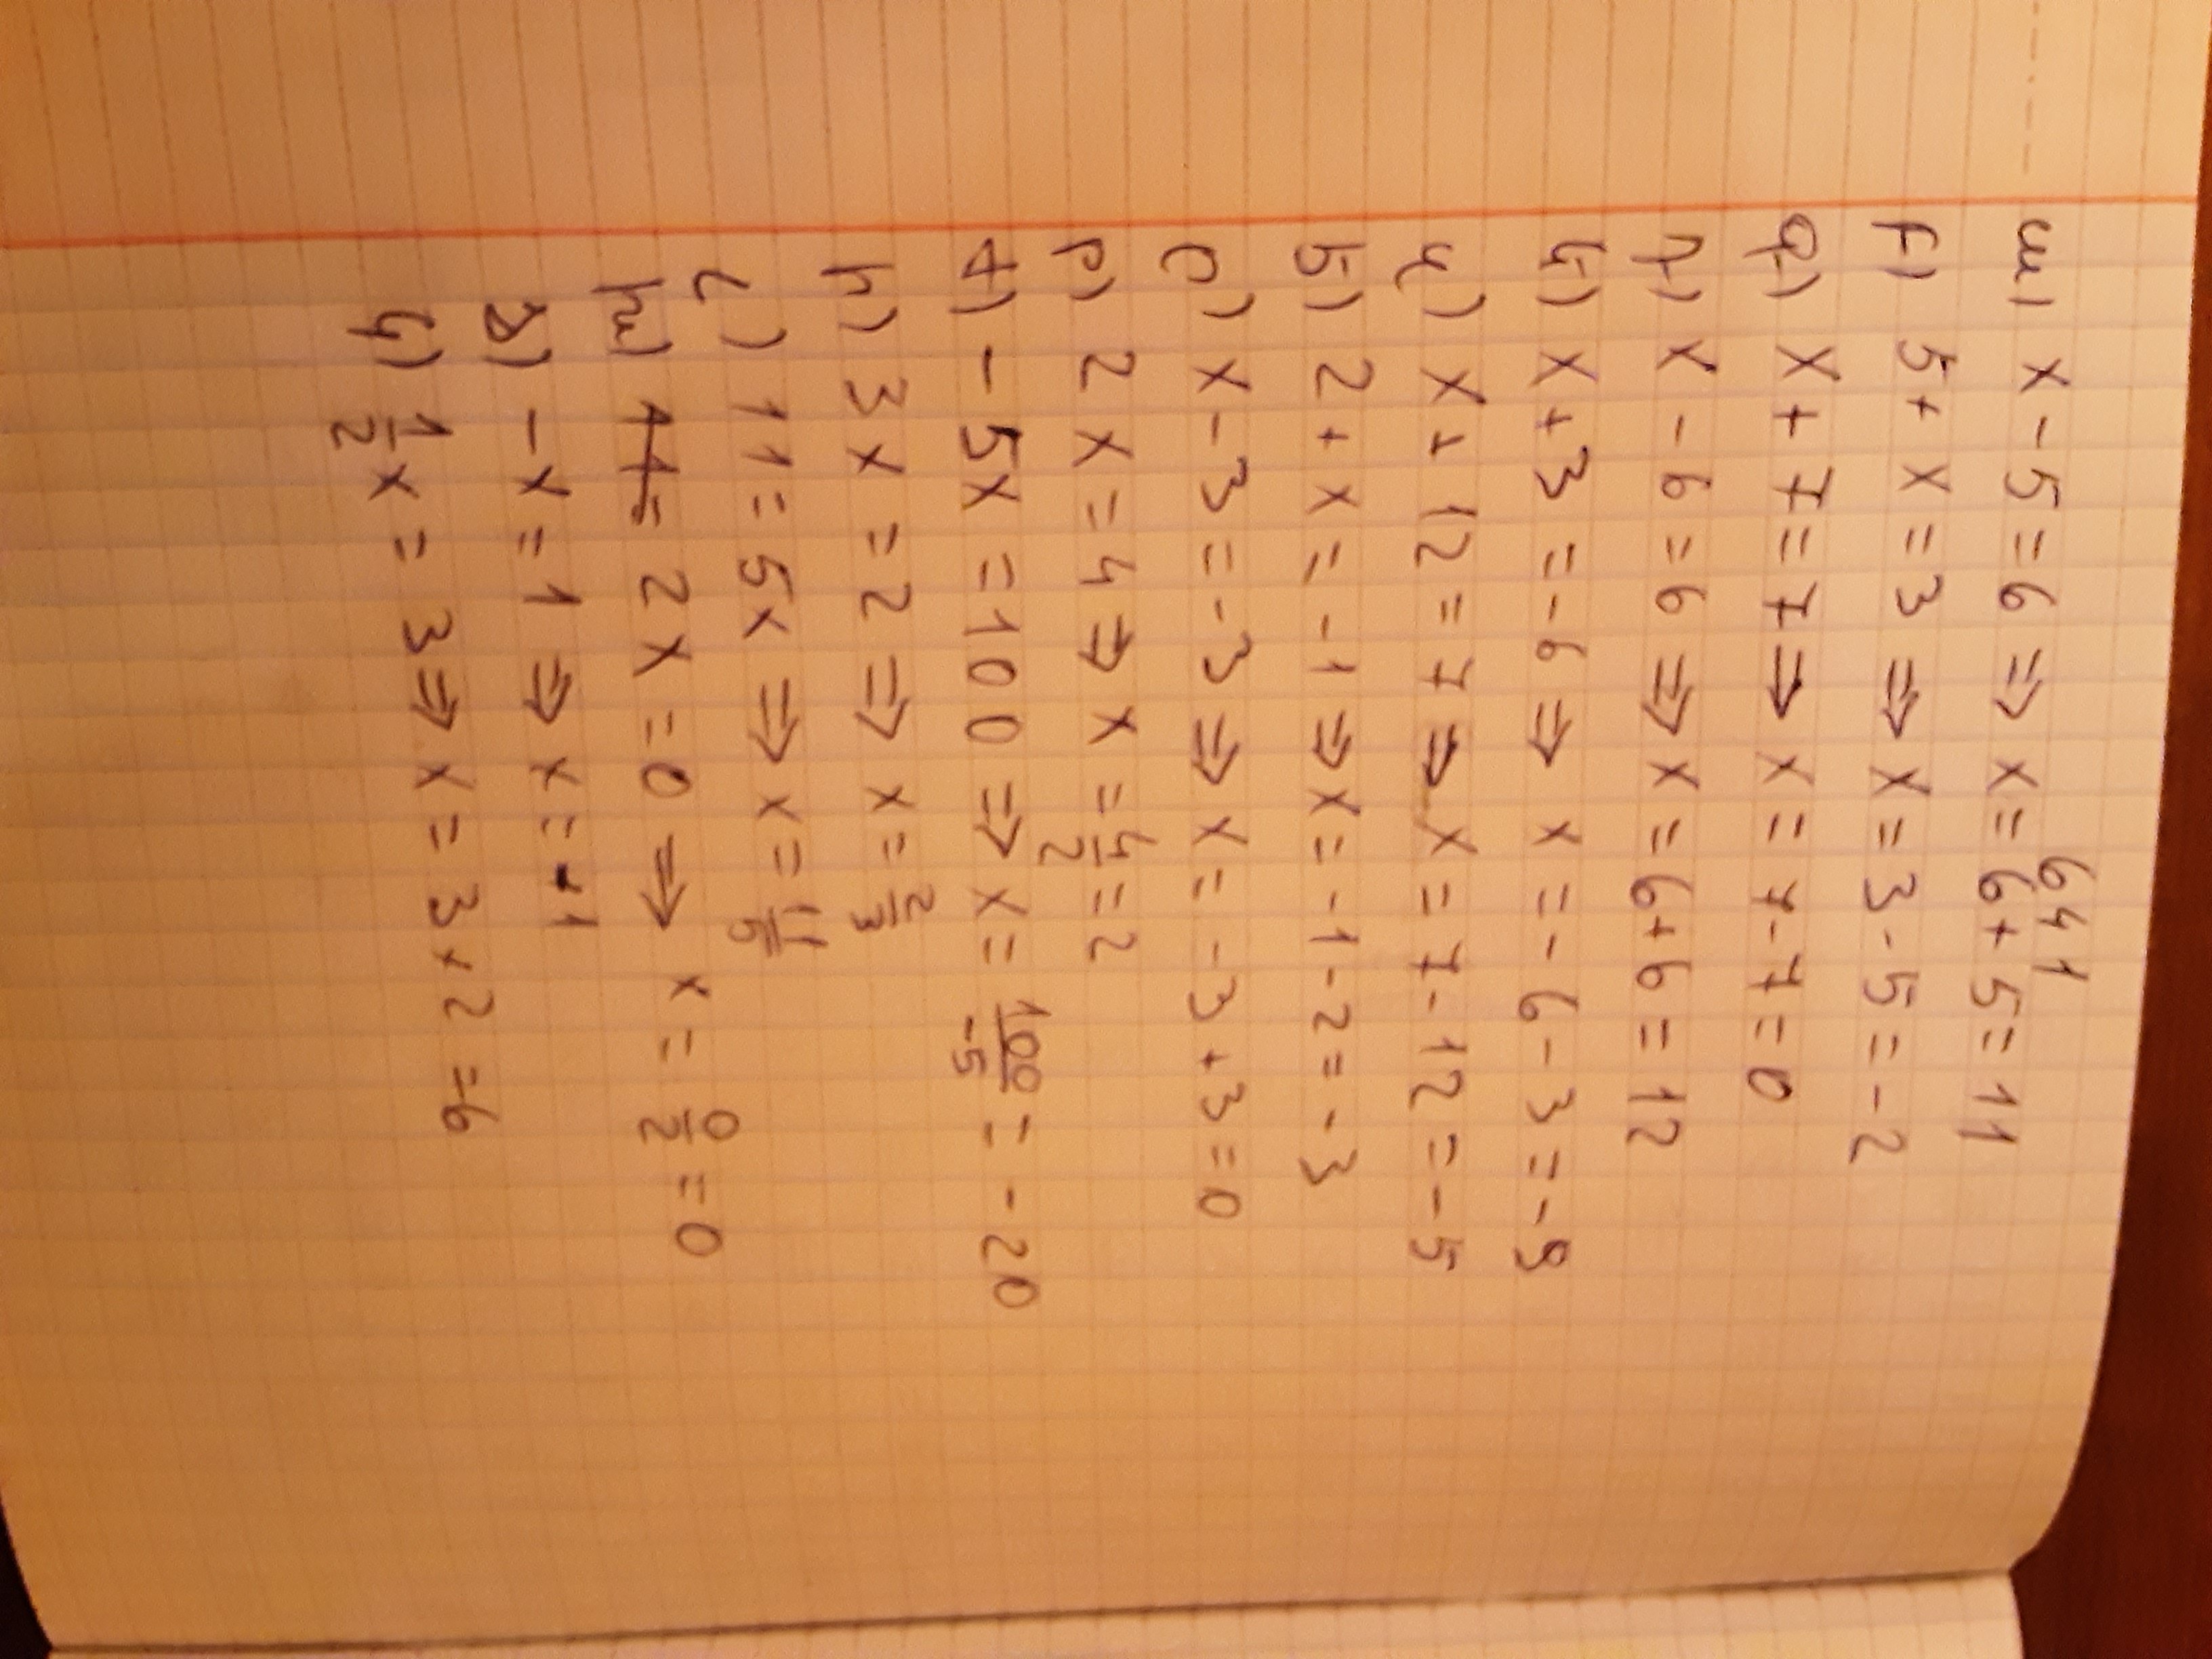 641
ա) x-5=6 ⇒ x=6+5=11
բ) 5+x=3 ⇒ x=3-5=-2
գ) x+7=7 ⇒ x=7-7=0
դ) x-6=6 ⇒ x=6+6=12
ե) x+3=-6 ⇒ x=-6-3=-9
զ) x+12=7 ⇒ x=7-12=-5
է) 2+x=-1 ⇒ x=-1-2=-3
ը) x-3=-3 ⇒ x=-3+3=0
թ) 2x=4 ⇒ x=4/2=2
ժ) -5x=100 ⇒ x=100/-5=-20
ի) 3x=2 ⇒ x=2/3
լ) 11=5x ⇒ x=11/5
խ) 2x=0 ⇒ x=0/2=0
ծ) -x=1 ⇒ x=-1
կ) 1/2x=3 ⇒ x=3*2=6